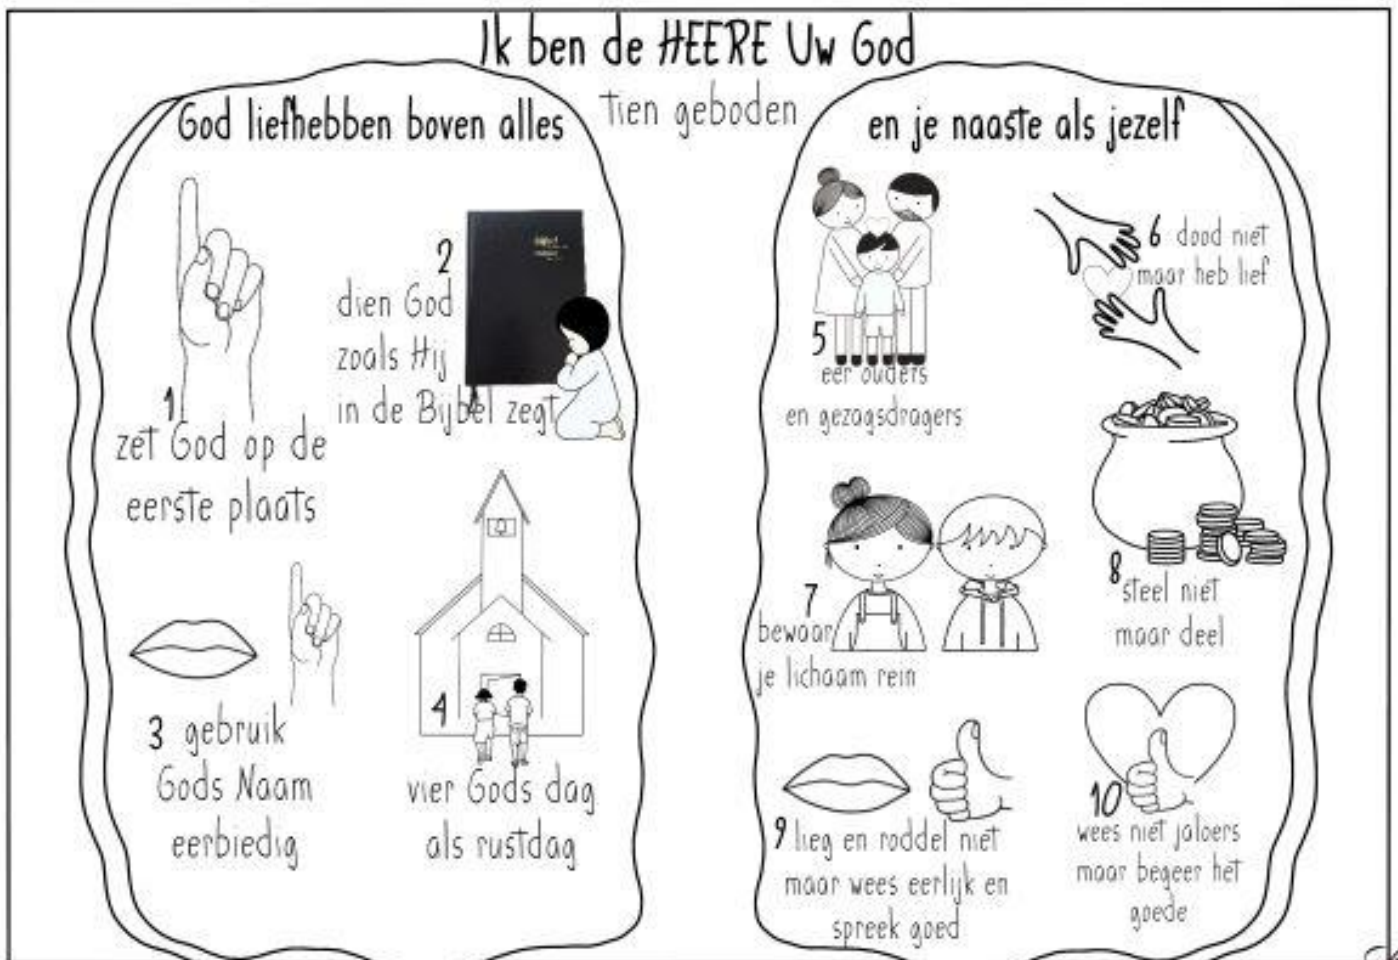 Ik ben de HEERE Uw God
tien geboden
God liefhebben boven alles
1
zet God op de
eerste plaats
2
dien God
zoals Hij
in de Bijbel zegt
3 gebruik
Gods Naam
eerbiedig
4
vier Gods dag
als rustdag
en je naaste als jezelf
5
eer ouders
en gezagsdragers
6 dood niet
maar heb lief
7
bewaar
je lichaam rein
8
steel niet
maar deel
9 lieg en roddel niet
maar wees eerlijk en
spreek goed
10
wees niet jaloers
maar begeer het
goede